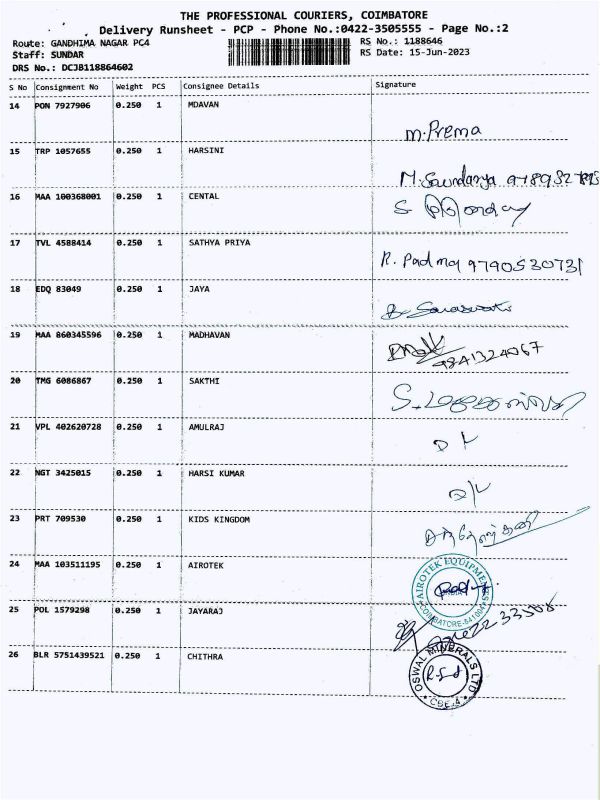 THE PROFESSIONAL COURIERS, COIMBATORE
Delivery Runsheet - PCP - Phone No.:0422-3505555 - Page No.:2
Route: GANDHIMA NAGAR PC4 RS No.: 1188646
Staff: SUNDAR RS Date: 15-Jun-2023
DRS No.: DCJB118864602
S No Consignment No Weight PCS Consignee Details Signature
14 PON 7927906 0.250 1 MDAVAN
M.Prema
15 TRP 1057655 0.250 1 HARSINI
M.Saundarya
16 MAA 100368001 0.250 1 CENTAL
S
17 TVL 4588414 0.250 1 SATHYA PRIYA
R. Padma 9790530731
18 EDQ 83049 0.250 1 JAYA
Saraswathi
19 MAA 860345596 0.250 1 MADHAVAN
9841324067
20 TMG 6086867 0.250 1 SAKTHI
S.
21 VPL 402620728 0.250 1 AMULRAJ
22 NGT 3425015 0.250 1 HARSI KUMAR
23 PRT 709530 0.250 1 KIDS KINGDOM
24 MAA 103511195 0.250 1 AIROTEK
AIROTEK EQUIPMENTS
COIMBATORE-641004
25 POL 1579298 0.250 1 JAYARAJ
26 BLR 5751439521 0.250 1 CHITHRA
OSWAL MINERALS LTD
CBE-4